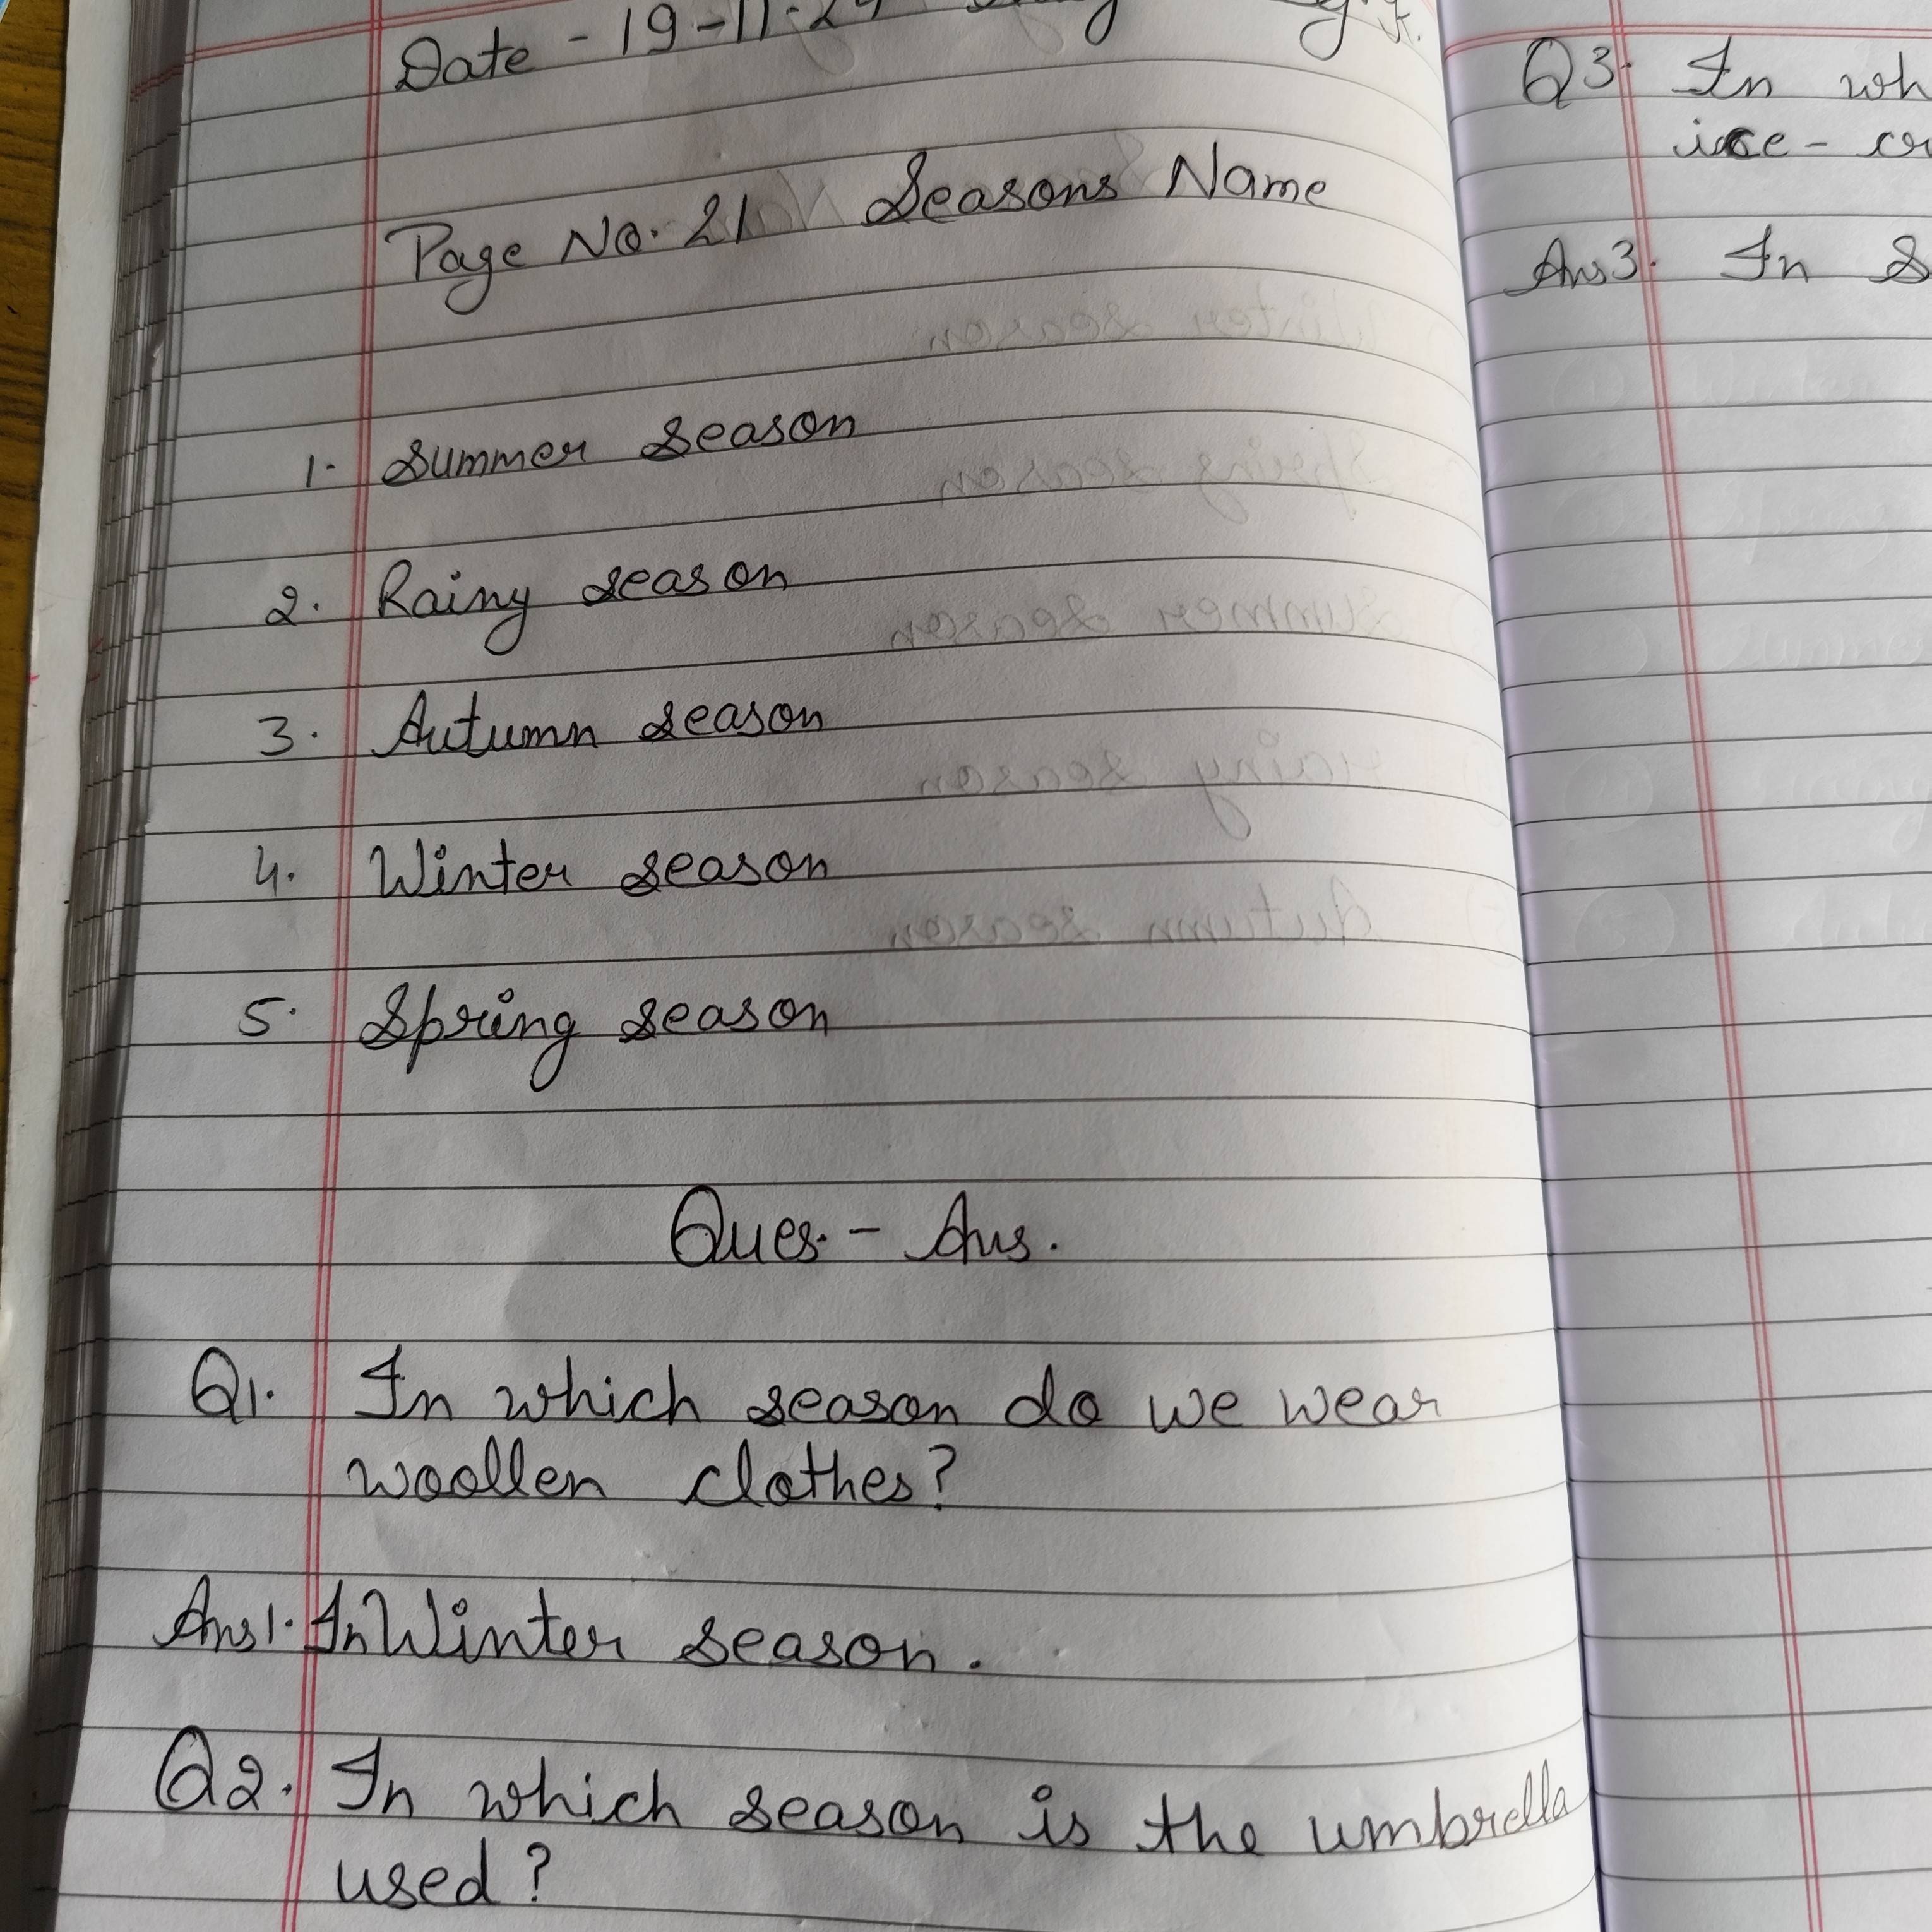 Date - 19-11-24
Page No. 21 Seasons Name
1. Summer season
2. Rainy season
3. Autumn season
4. Winter season
5. Spring season
Ques. - Ans.
Q1. In which season do we wear
woollen clothes?
Ans1. In Winter season.
Q2. In which season is the umbrella
used?
Q3. In wh
ice - cr
Ans3. In S